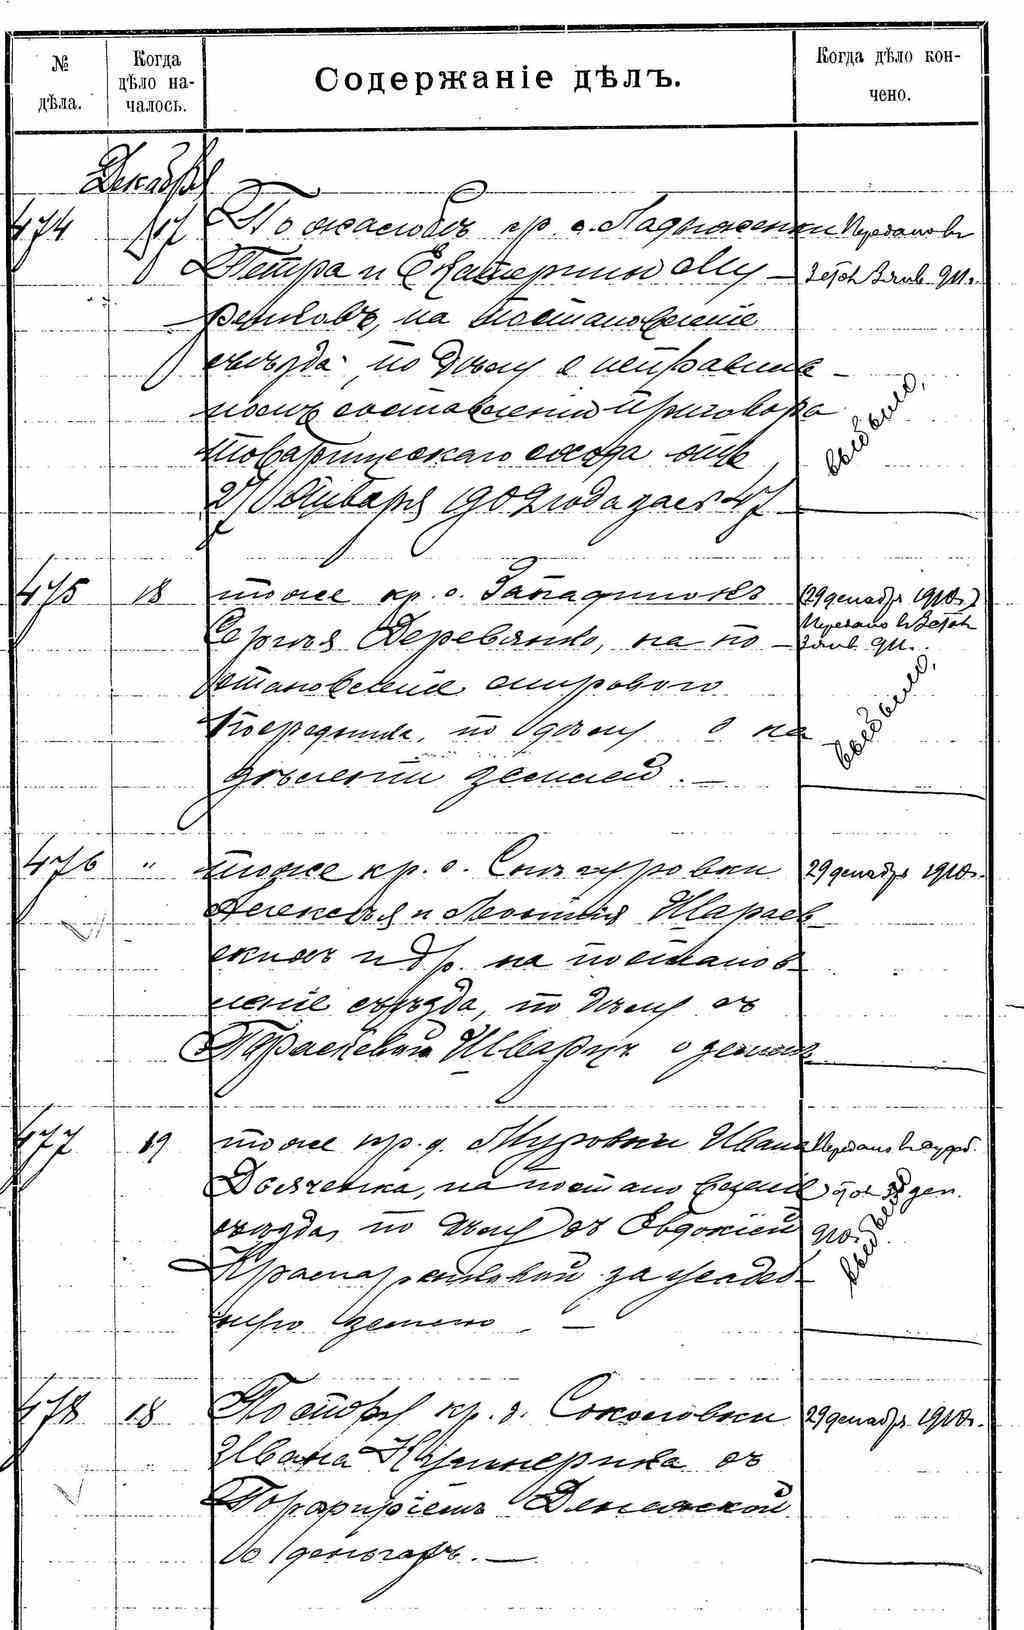 № дѣла.
Когда дѣло началось.
Содержаніе дѣлъ.
Когда дѣло кончено.
Декабря
474 17 По жалобѣ кр. с. Ладыженки
Петра и Екатерины Му-
на постановленіе
съѣзда, по дѣлу о неправиль-
номъ составленіи приговора
товарищескаго схода отъ
27 Января 1909 года за № 47
Передано въ
выбыло,
475 18 тоже кр. с. Западинокъ
Сергѣя Деревянко, на по-
становленіе мирового
посредника, по дѣлу о на
дѣленіи землей. —
(29 декабр 1910 г.)
Передано въ
выбыло,
476 " тоже кр. с. Снѣгуровки
Алексѣя и Леонтія Шараев-
скихъ и др. на постанов-
леніе съѣзда, по дѣлу съ
Параскевой Швабрич о земл
29 декабр 1910 г.
477 19 тоже кр. д. Муровки Ивана
на постановленіе
съѣзда, по дѣлу съ Евдокіей
за усадеб-
ную землю. —
Передано въ
дек.
910 г.
выбыло
478 18 По спору кр. д. Соколовки
Ивана Кушнерика съ
Порфиріемъ
о деньгахъ. —
29 декабр 1910 г.